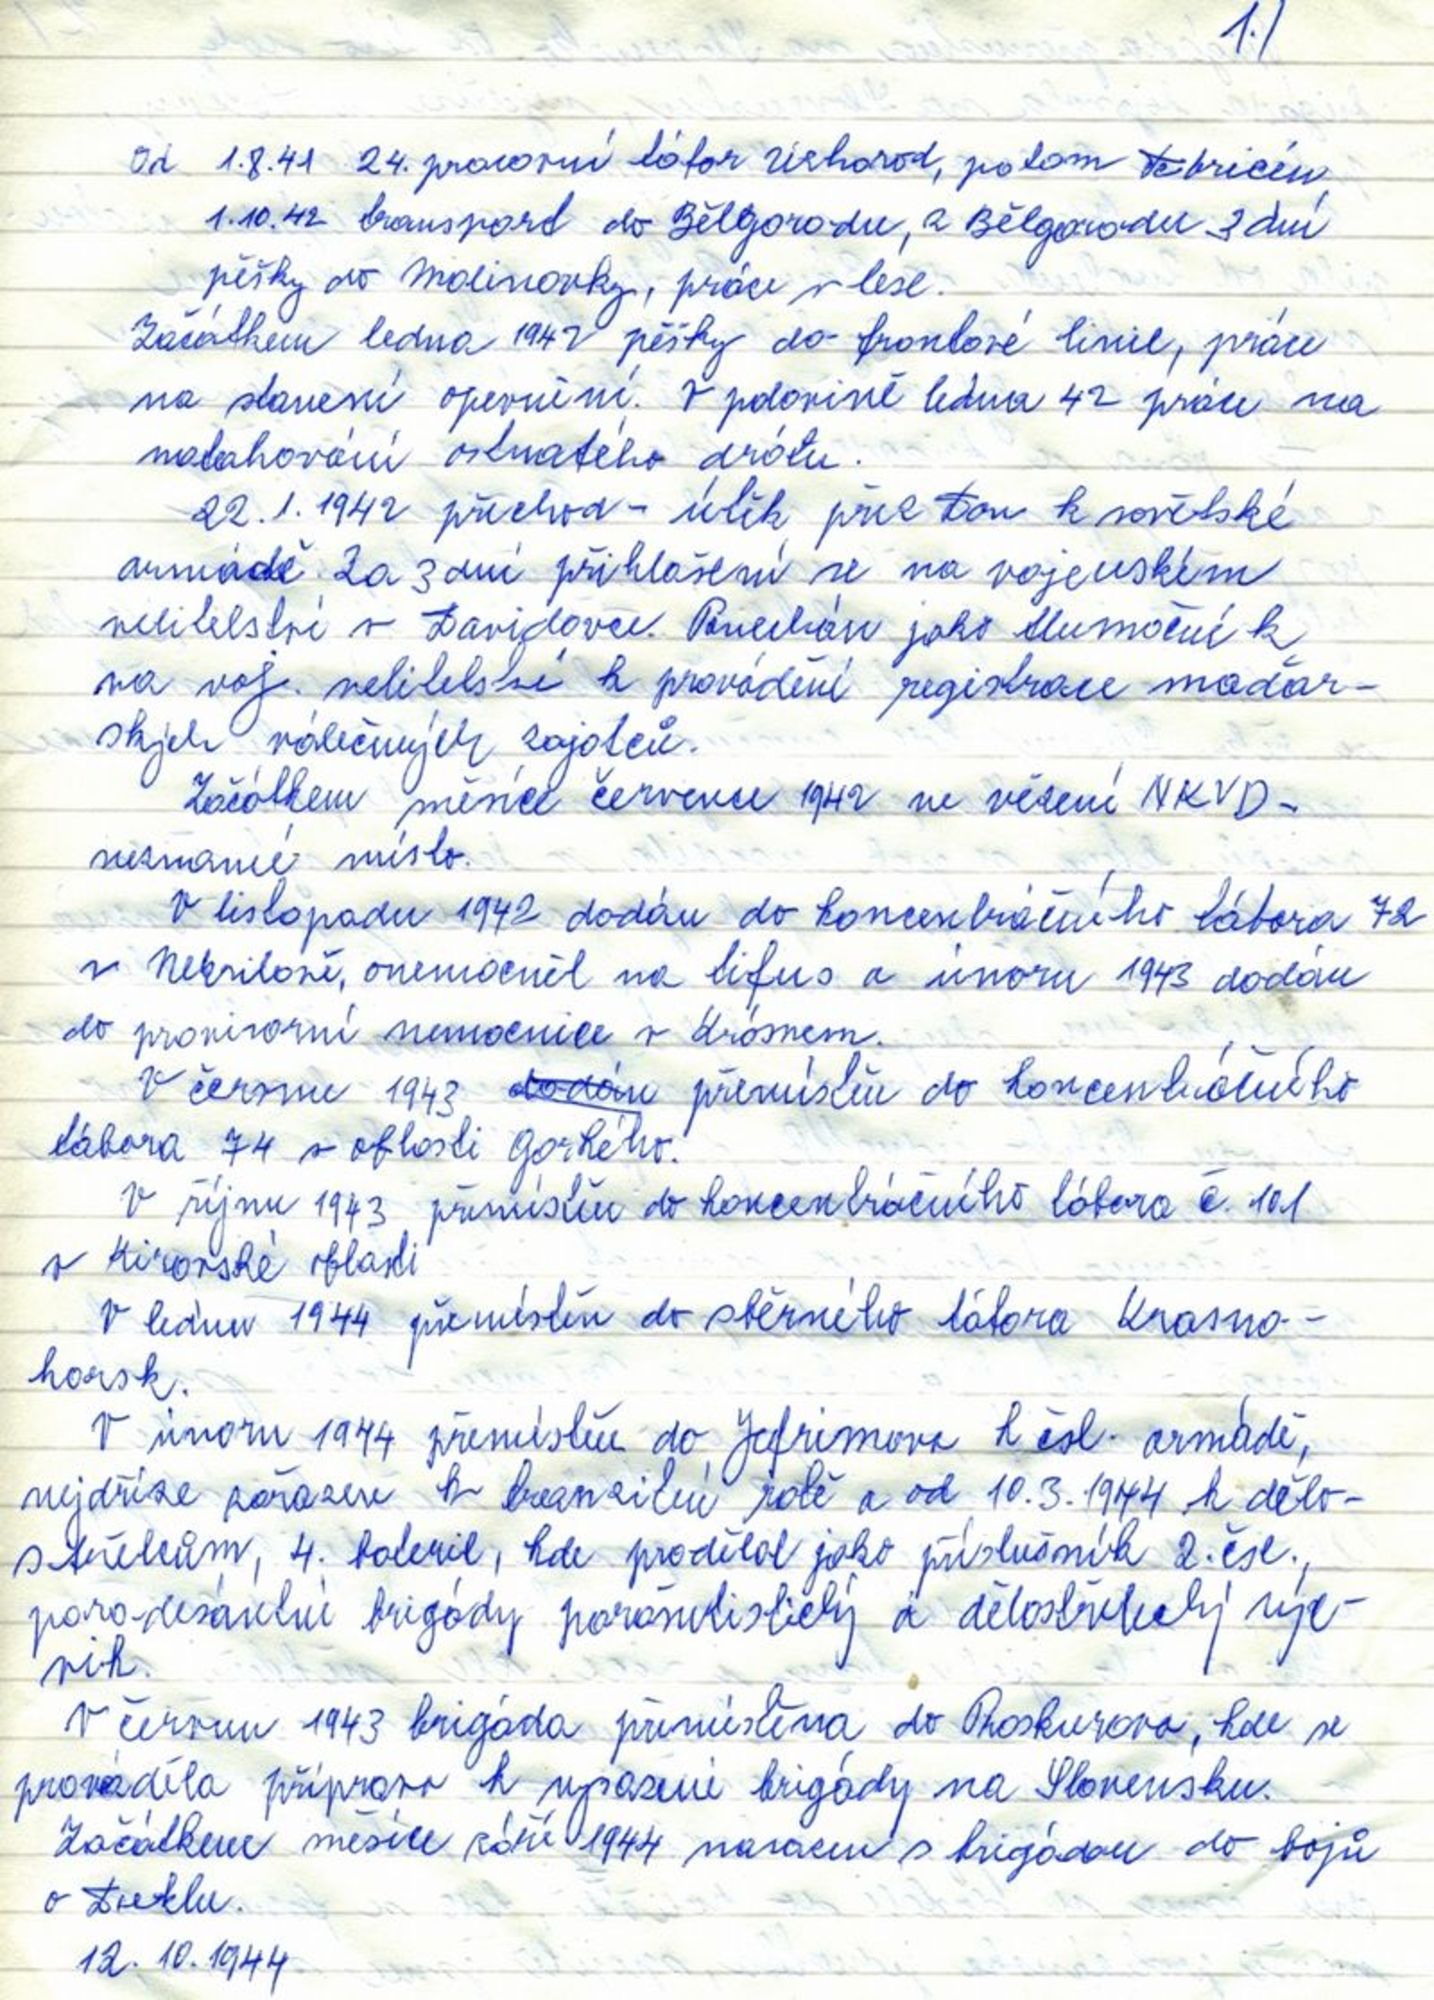 1./
Od 1.8.41 24. pracovní tábor Užhorod, potom Debricén,
1.10.42 transport do Bělgorodu, z Bělgorodu 3 dní
pěšky do Molinovky, práce v lese.
Začátkem ledna 1942 pěšky do frontové linie, práce
na stavení opevnění. V polovině ledna 42 práce na
natahování ostnatého drátu.
22.1.1942 přechod - útěk přez Don k sovětské
armádě. Za 3 dní přihlášení se na vojenském
velitelství v Davidovce. Ponechán jako tlumočník
na voj. velitelství k provádění registrace maďar-
ských válečných zajatců.
Začátkem měsíce července 1942 ve vězení NKVD -
neznámé místo.
V listopadu 1942 dodán do koncentráčního tábora 72
v Nekrilově, onemocněl na tifus a únoru 1943 dodán
do provizorní nemocnice v Krásnem.
V červnu 1943 dodán přemístěn do koncentráčního
tábora 74 v oblasti Gorkého.
V říjnu 1943 přemístěn do koncentráčního tábora č. 101
v Kirovské oblasti
V lednu 1944 přemístěn do sběrného tábora Krasno-
horsk.
V únoru 1944 přemístěn do Jefrimova k čsl. armádě,
nejdříve zařazen k tranzitní rotě a od 10.3.1944 k dělo-
střelcům, 4. baterie, kde prodělal jako příslušník 2. čsl.,
para-desántní brigády parašutistický a dělostřelecký výc-
vik.
V červnu 1943 brigáda přemístěna do Proskurova, kde se
prováděla příprava k vysazení brigády na Slovensku.
Začátkem měsíce září 1944 nasazen s brigádou do bojů
o Duklu.
12.10.1944